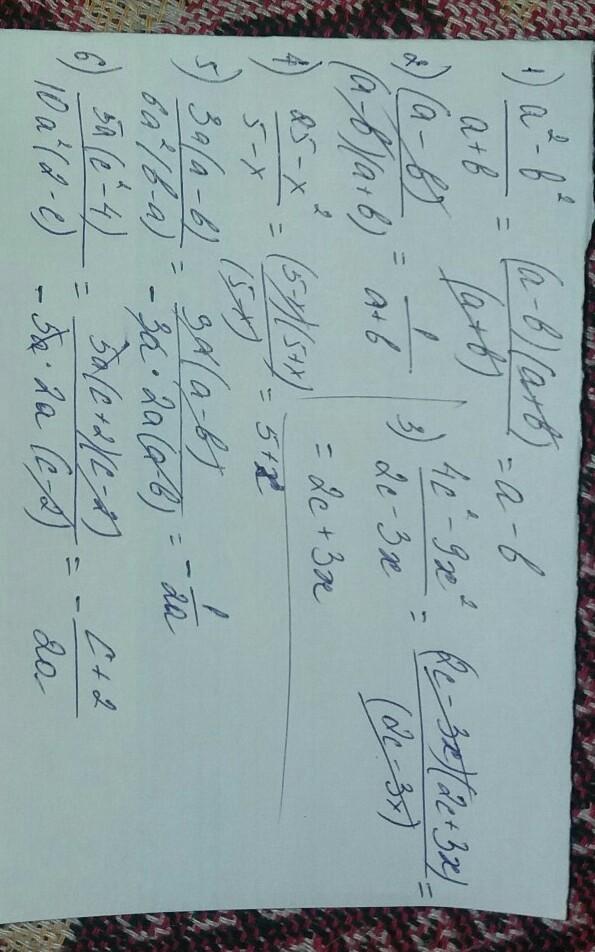 1) (a² - b²)/(a + b) = ((a - b)(a + b))/(a + b) = a - b
2) (a - b)/((a - b)(a + b)) = 1/(a + b)
3) (4c² - 9x²)/(2c - 3x) = ((2c - 3x)(2c + 3x))/(2c - 3x) =
= 2c + 3x
4) (25 - x²)/(5 - x) = ((5 - x)(5 + x))/(5 - x) = 5 + x
5) (3a(a - b))/(6a²(b - a)) = (3a(a - b))/(-3a · 2a(a - b)) = - 1/(2a)
6) (5a(c² - 4))/(10a²(2 - c)) = (5a(c + 2)(c - 2))/(-5a · 2a(c - 2)) = - (c + 2)/(2a)